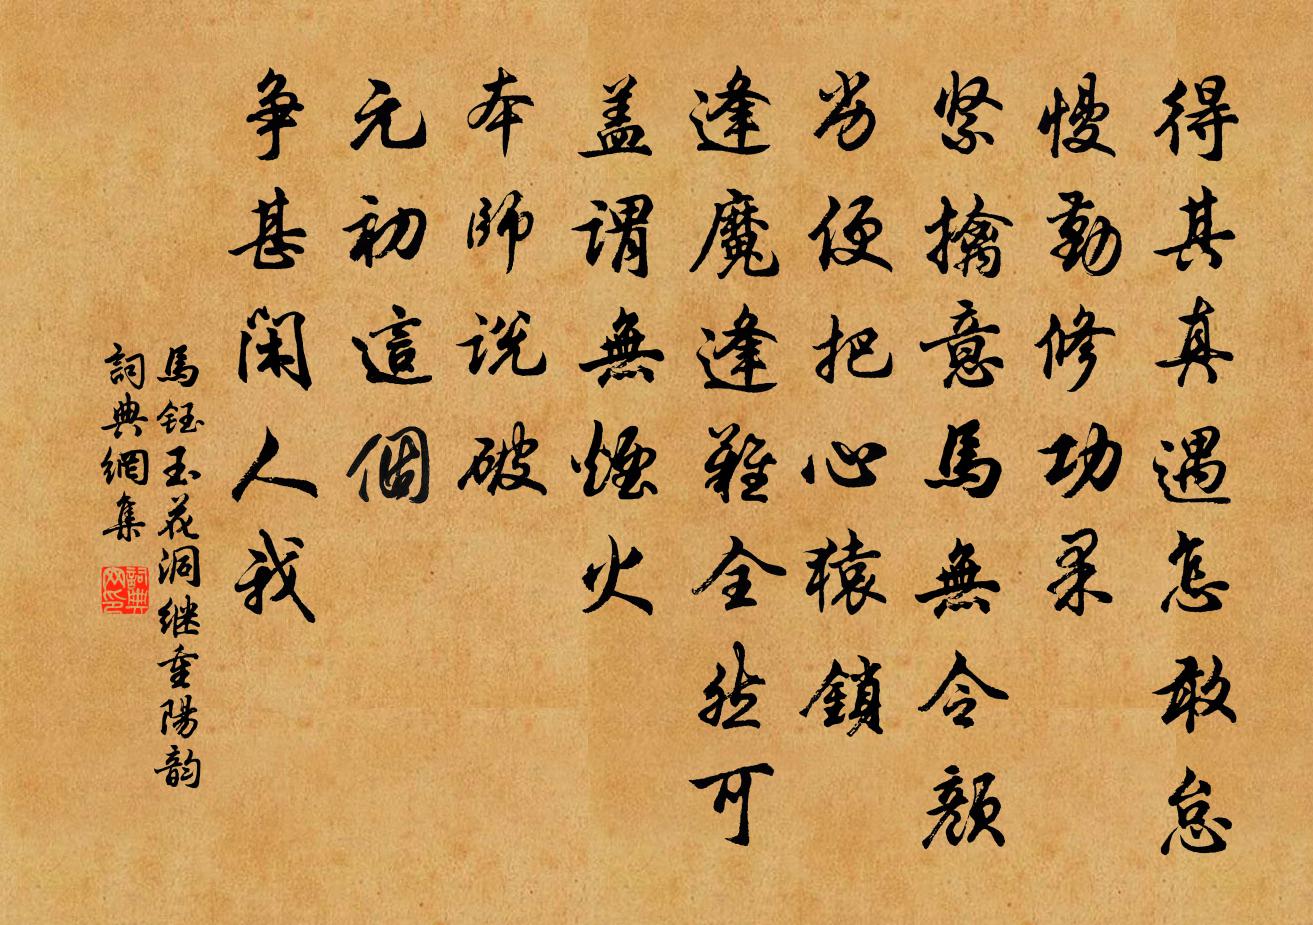 得其真遇怎敢怠
慢勤修功果
紧擒意馬無令顛
劣便把心猿鎖
逢魔逢難全然可
盖謂無煙火
本師說破
元初這個
争甚閑人我
馬鈺玉花洞继重陽韵
詞典網集
詞典网印